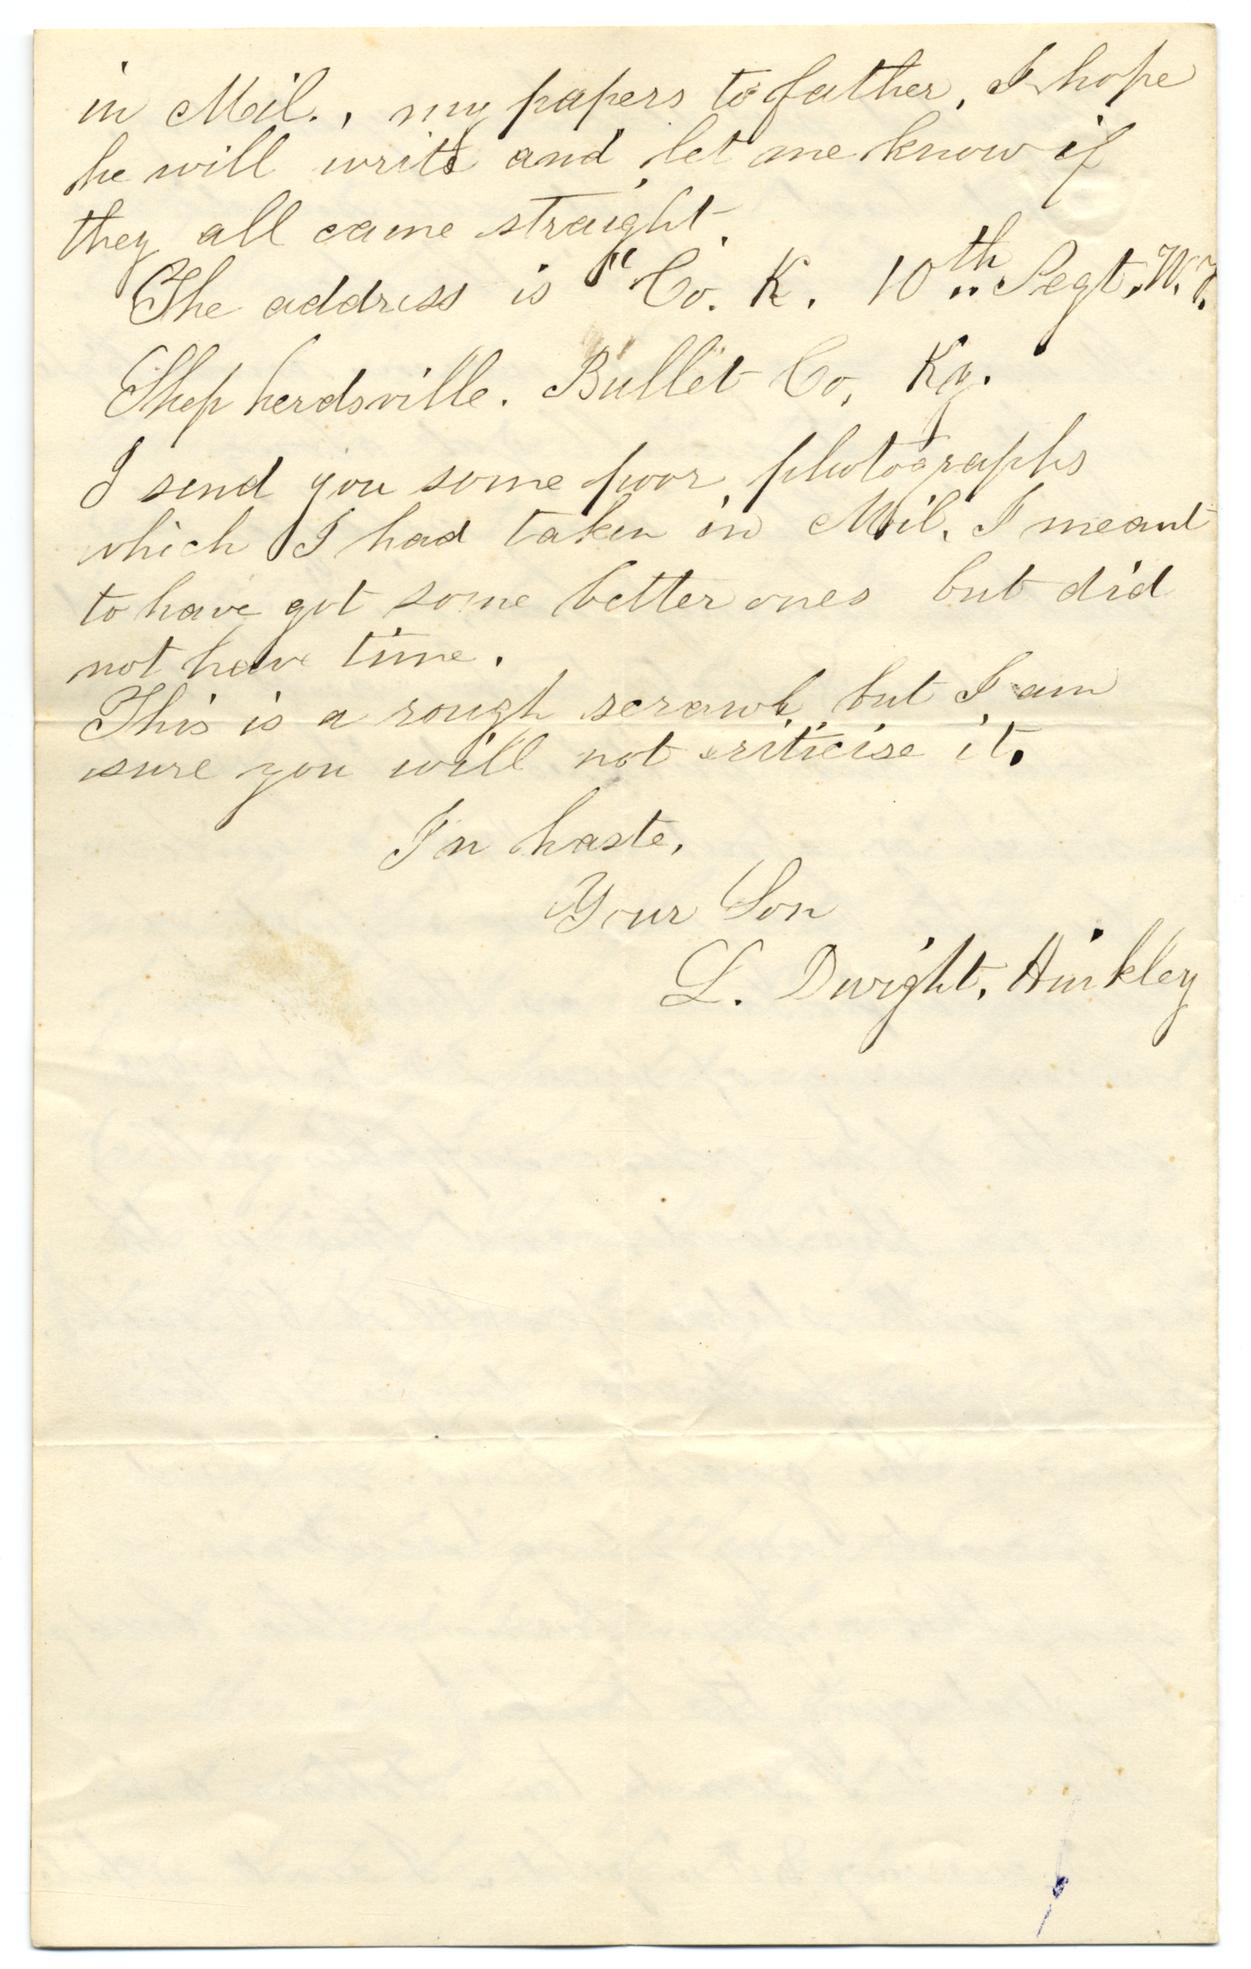 in Mil., my papers to father, I hope
he will write and let me know if
they all came straight.
The address is "Co. K. 10th Regt. W.V.
Shepherdsville. Bullet Co, Ky.
I send you some poor photographs
which I had taken in Mil. I meant
to have got some better ones but did
not have time.
This is a rough scrawl but I am
sure you will not criticise it.
In haste,
Your Son
L. Dwight, Hinkley